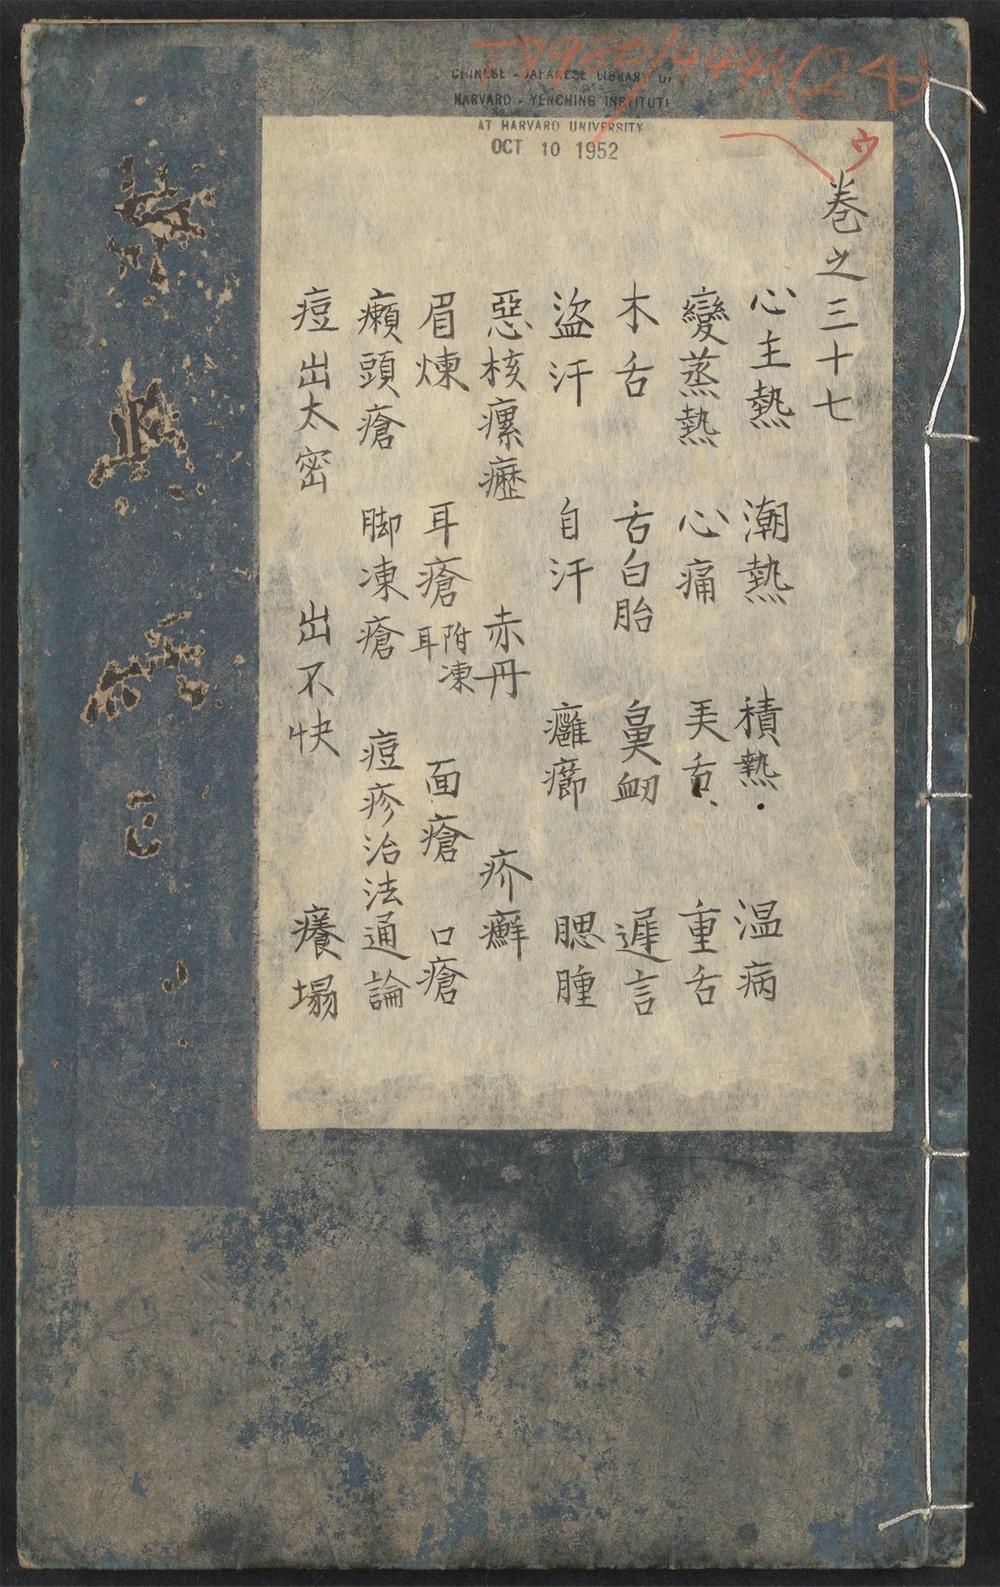 TD980/4443(24)
CHINESE - JAPANESE LIBRARY OF
HARVARD - YENCHING INSTITUTE
AT HARVARD UNIVERSITY
OCT 10 1952
ウ
卷之三十七
心主熱 潮熱 積熱 温病
變蒸熱 心痛 弄舌 重舌
木舌 舌白胎 鼻衄 遲言
盜汗 自汗 癰癤 腮腫
惡核瘰癧 赤丹 疥癬
眉煉 耳瘡 附凍耳 面瘡 口瘡
癩頭瘡 脚凍瘡 痘疹治法通論
痘出太密 出不快 癢塌